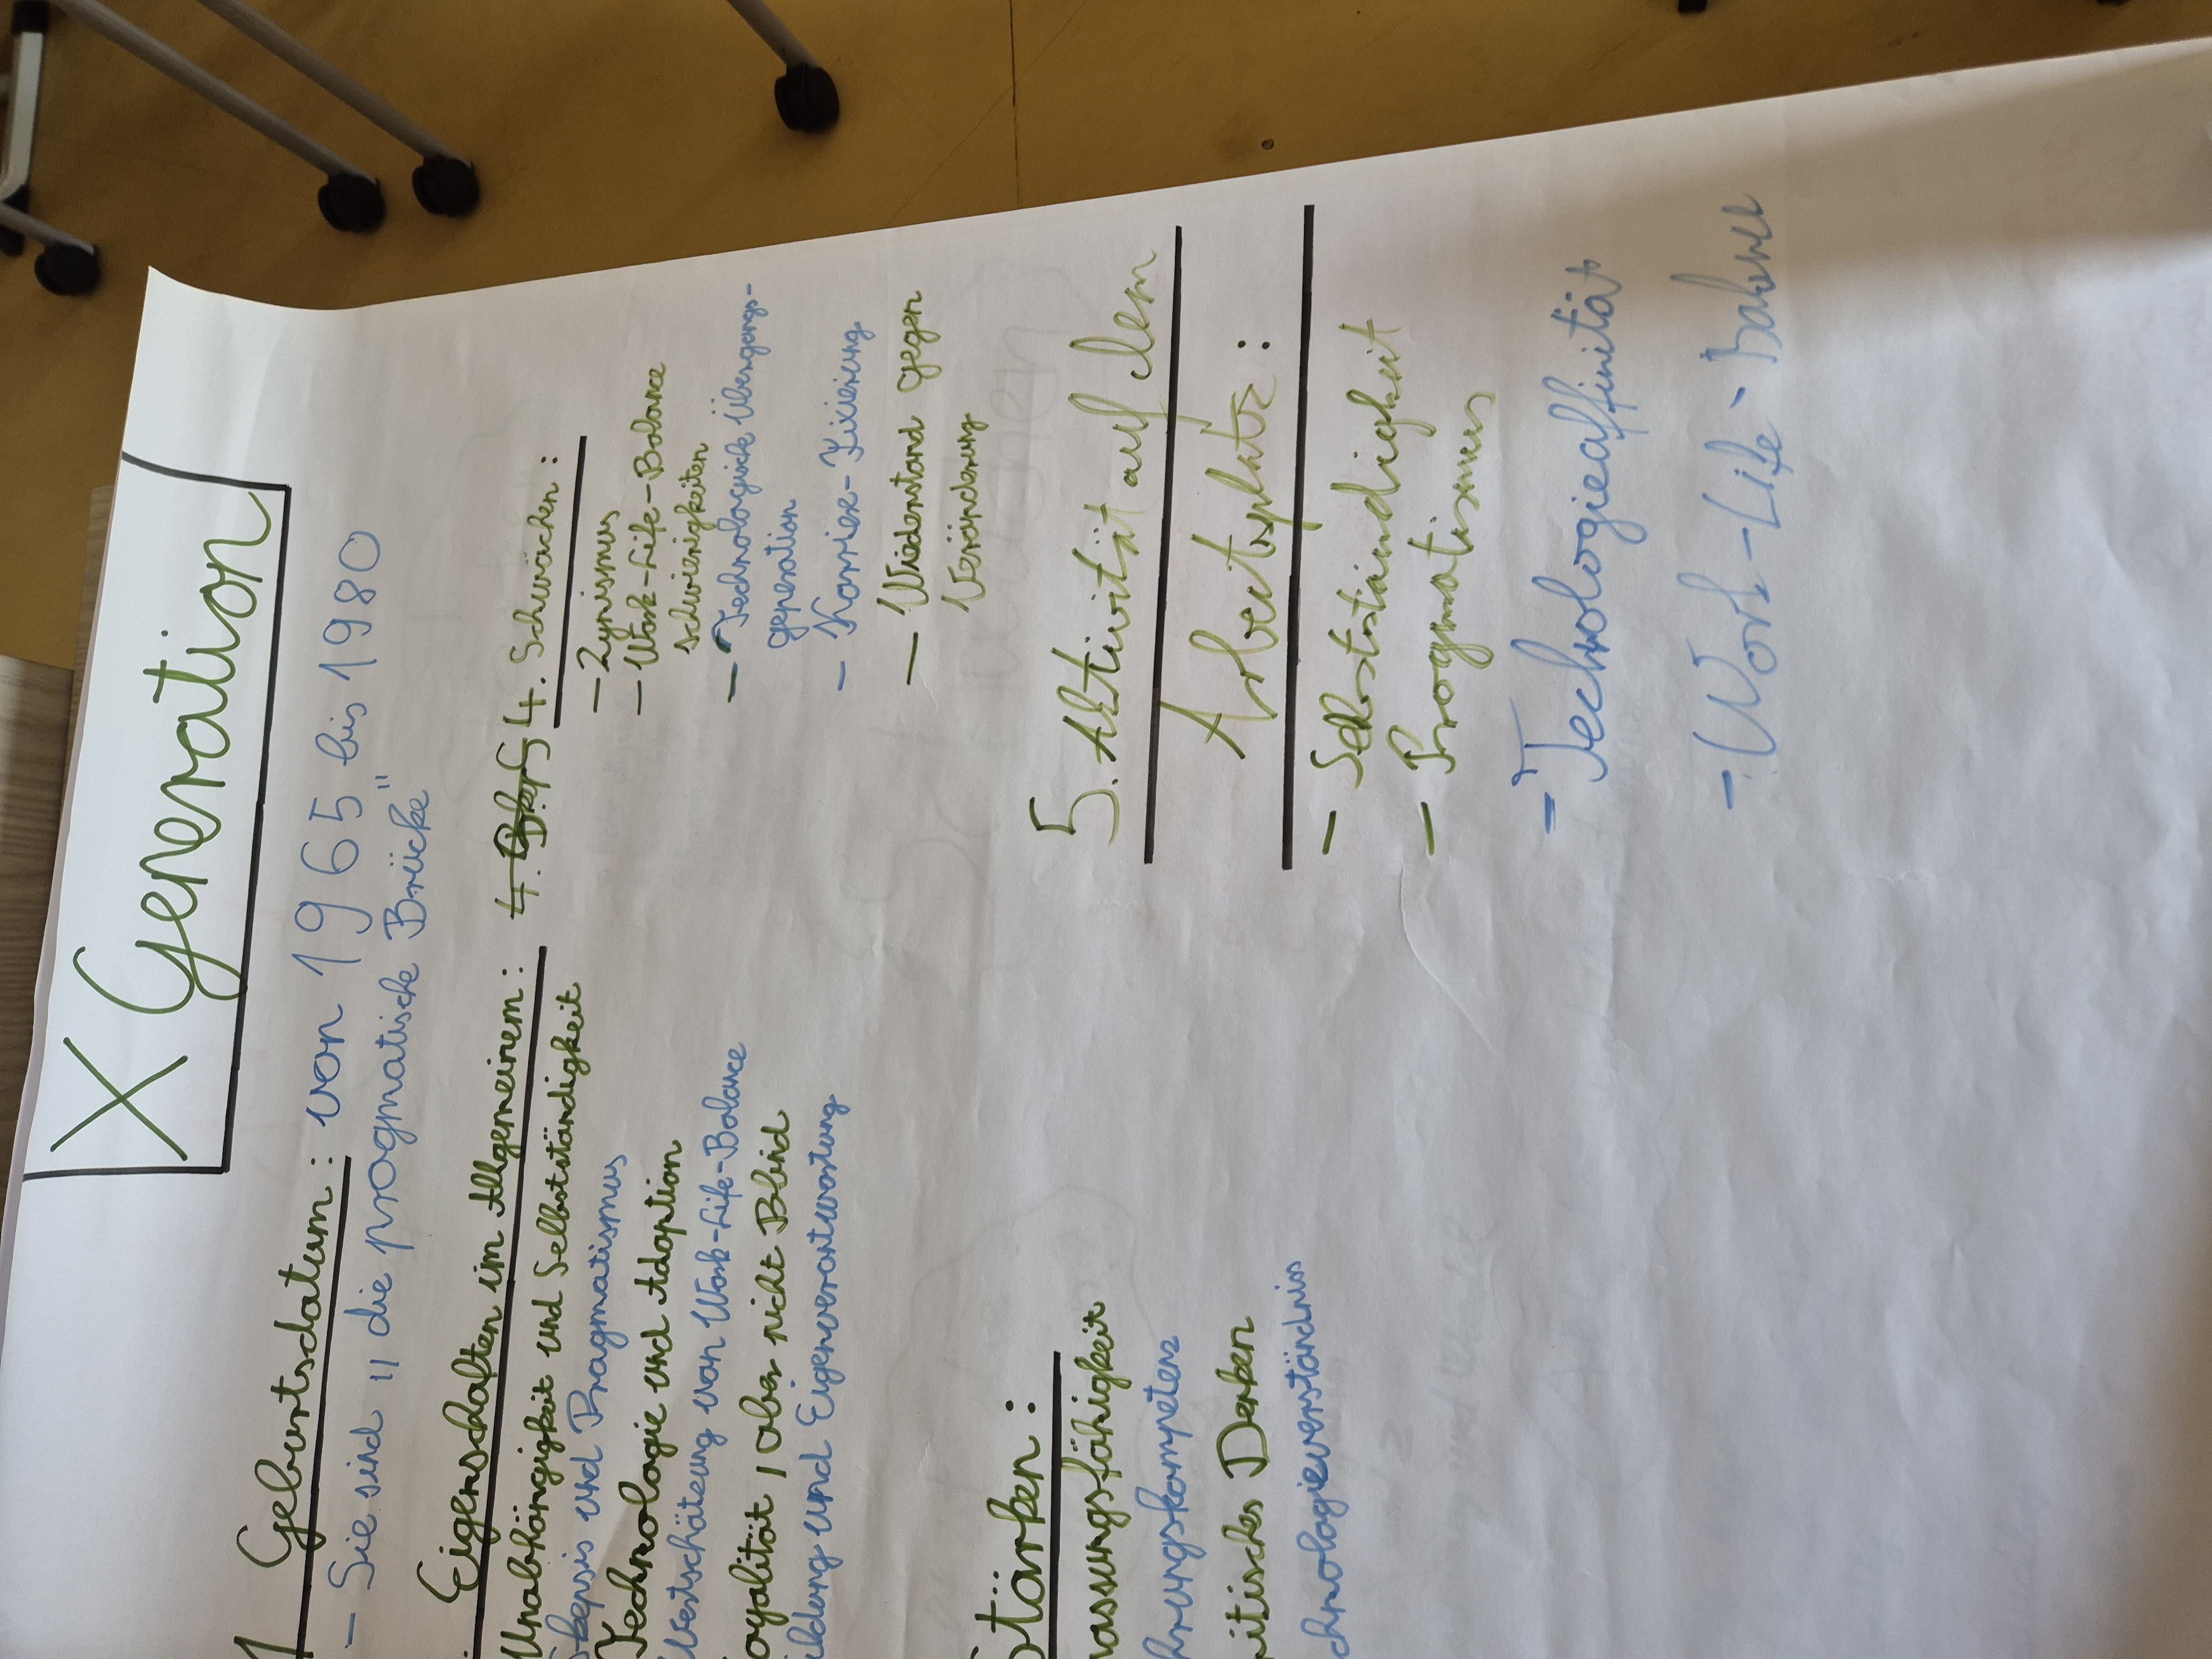 X Generation
1 Geburtsdatum: von 1965 bis 1980
- Sie sind "die pragmatische Brücke"
Eigenschaften im Allgemeinem:
Unabhängigkeit und Selbstständigkeit
Skepsis und Pragmatismus
Technologie und Adoption
Wertschätzung von Work-Life-Balance
oyalität, aber nicht Blind
ildung und Eigenverantwortung
tärken:
assungsfähigkeit
hrungskompetenz
ritisches Denken
chnologieverständniss
4. Schwächen:
- Zynismus
- Work-Life-Balance
schwierigkeiten
- Technologische Übergangs-
generation
- Karriere-Fixierung
- Wiederstand gegen
Veränderung
5. Aktivität auf dem
Arbeitsplatz:
- Selbstständigkeit
- Pragmatismus
- Technologieaffinität
- Work-Life-